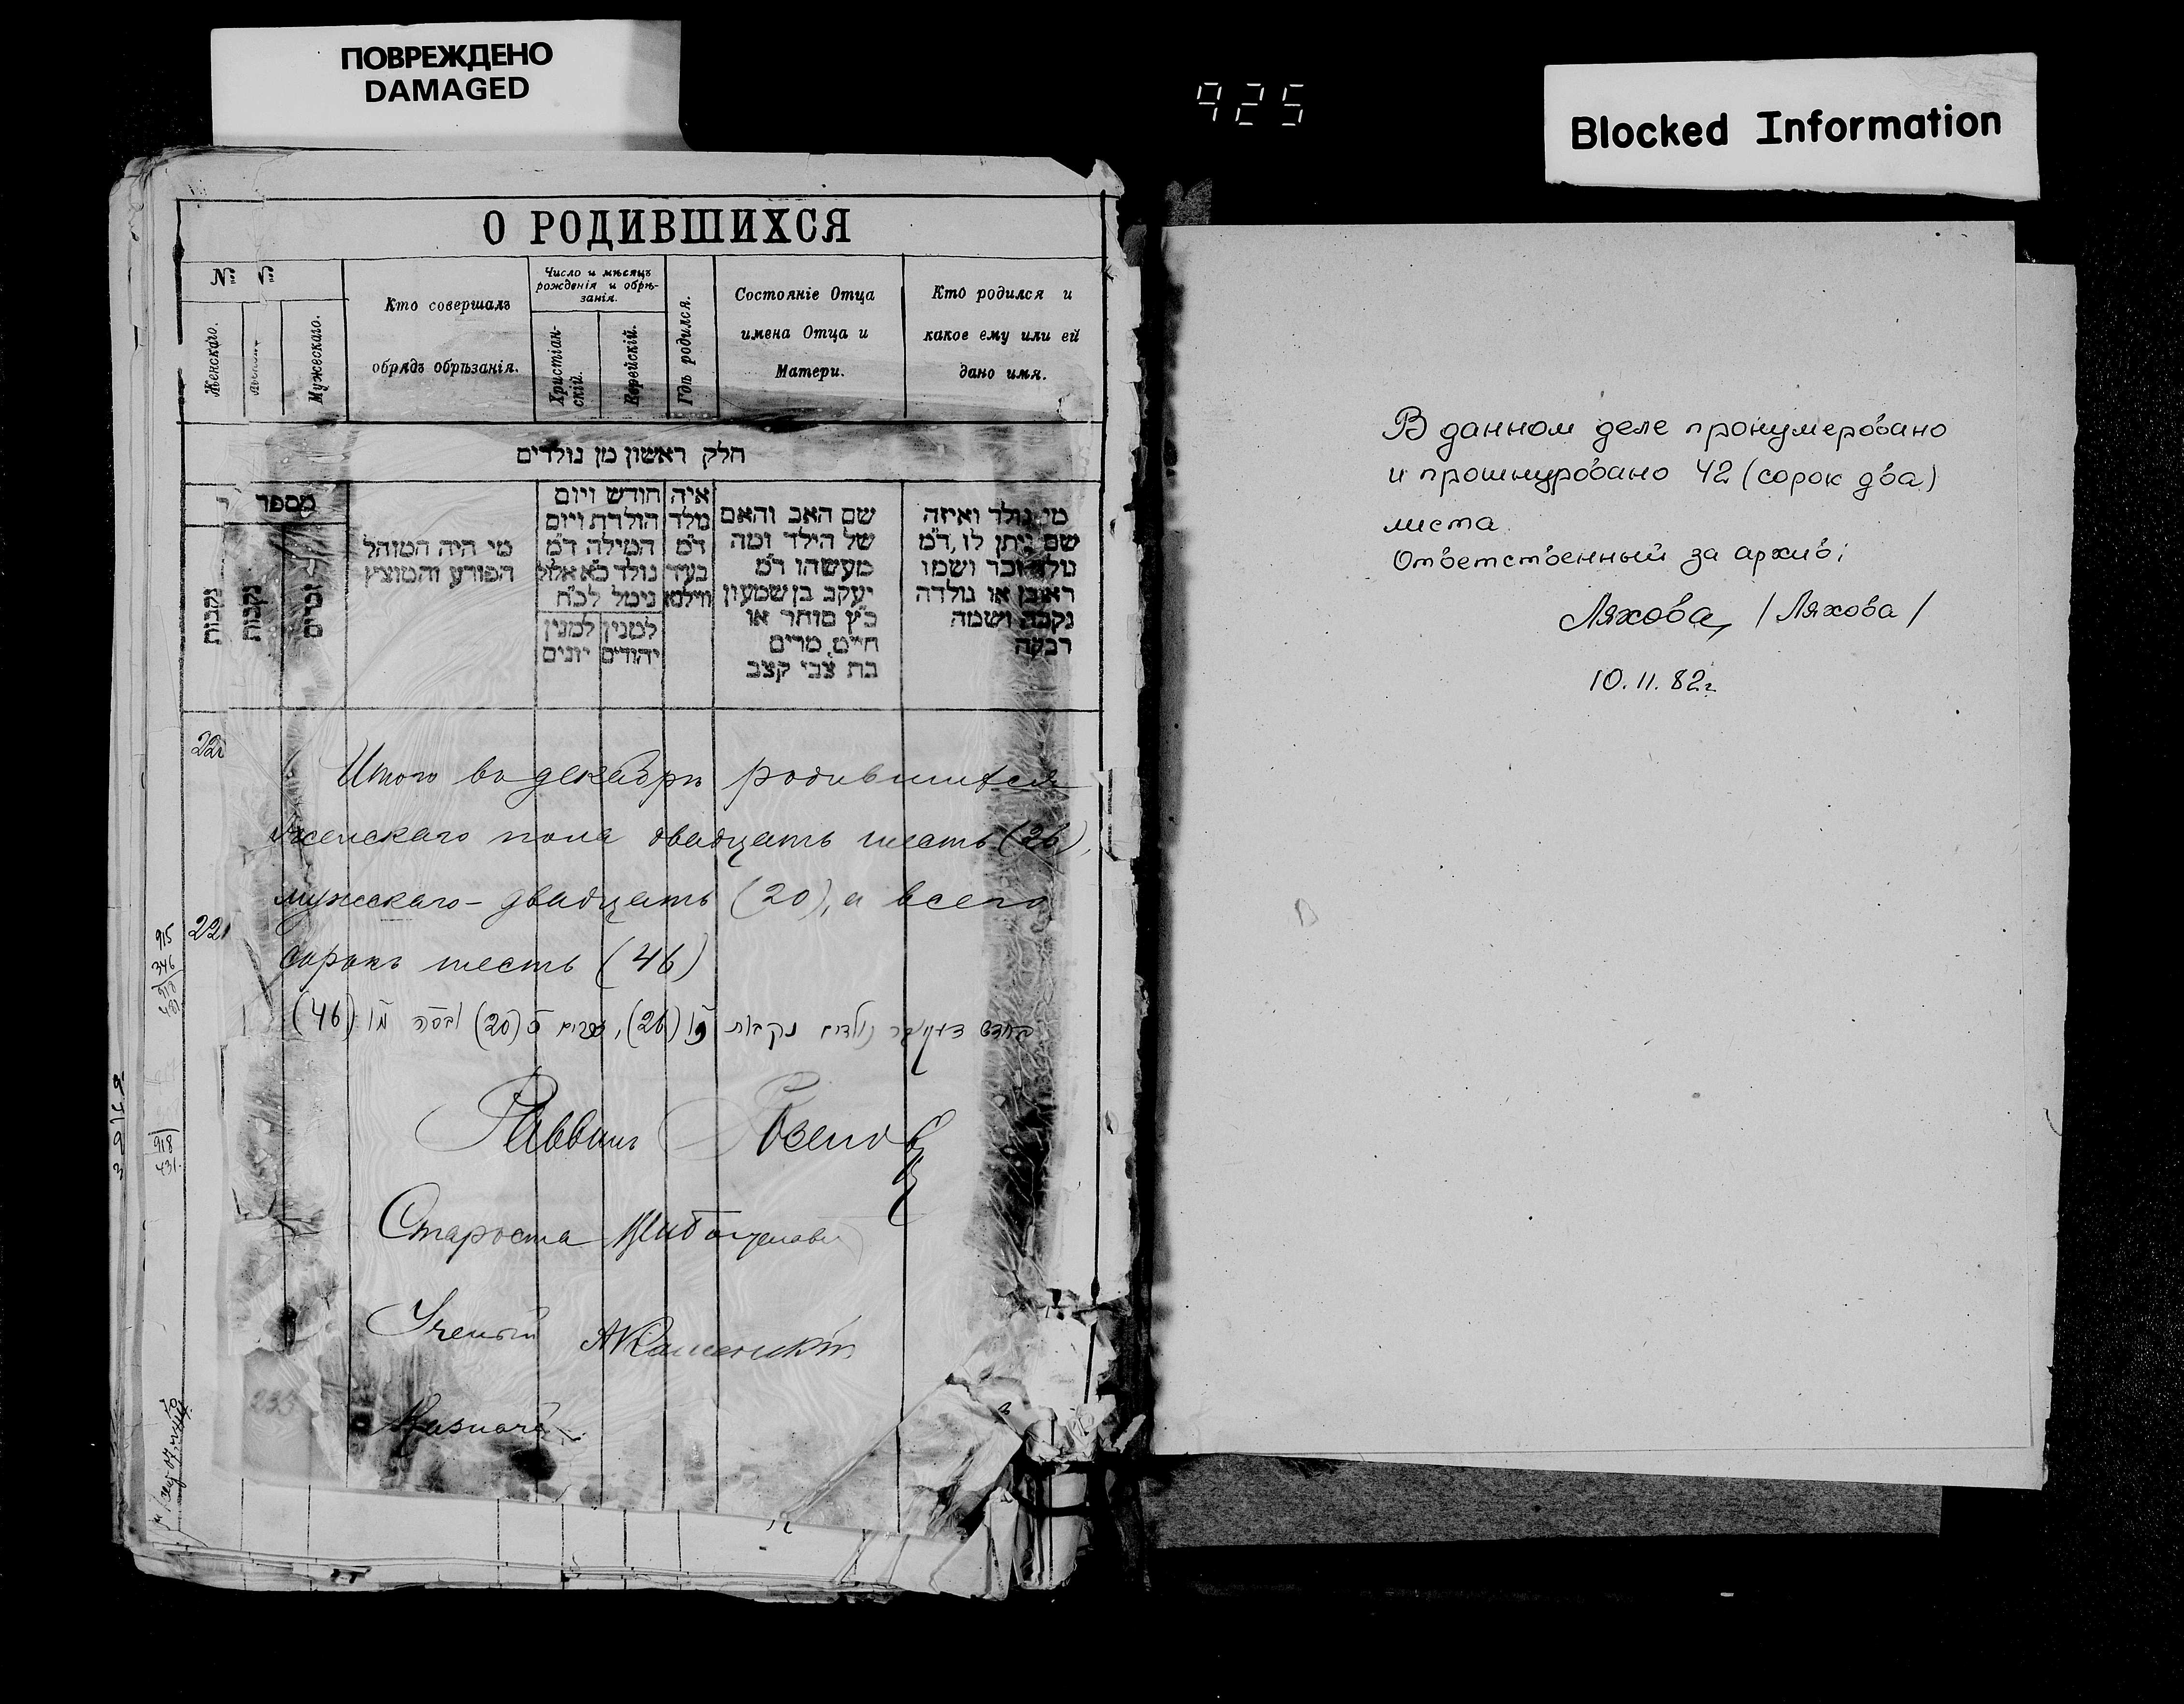 ПОВРЕЖДЕНО
DAMAGED
925
Blocked Information
О РОДИВШИХСЯ
№ №
Женскаго.
Мужескаго.
Кто совершалъ
обрядъ обрѣзанія.
Число и мѣсяцъ
рожденія и обрѣ-
занія.
Христіан-
скій.
Еврейскій.
Гдѣ родился.
Состояніе Отца
имена Отца и
Матери.
Кто родился и
какое ему или ей
дано имя.
חלק ראשון מן נולדים
מספר
נקבות
נקבות
זכרים
מי היה המוהל
הפורע והמוצץ
חודש ויום
הולדת ויום
המילה ד״מ
נולד כ״א אלול
נימול לכ״ח
למנין למנין
יהודים יונים
איה
נולד
ד״מ
בעיר
ווילנא
שם האב והאם
של הילד ומה
מעשהו ד״מ
יעקב בן שמעון
כ״ץ סוחר או
חיים, מרים
בת צבי קצב
מי נולד ואיזה
שם ניתן לו, ד״מ
נולד זכר ושמו
ראובן או נולדה
נקבה ושמה
רבקה
Итого въ декабрѣ родившихся
женскаго пола двадцать шесть (26),
мужскаго - двадцать (20), а всего
сорокъ шесть (46)
221
בחדש דעקабר נולדים נקבות כ״ו (26), זכרים כ (20) ובסה מ״ו (46)
Раввинъ
Староста
Ученый АКаменскій
Казначей
915
346
918
431
В данном деле пронумеровано
и прошнуровано 42 (сорок два)
листа.
Ответственный за архив:
Ляхова /Ляхова/
10.11.82г.